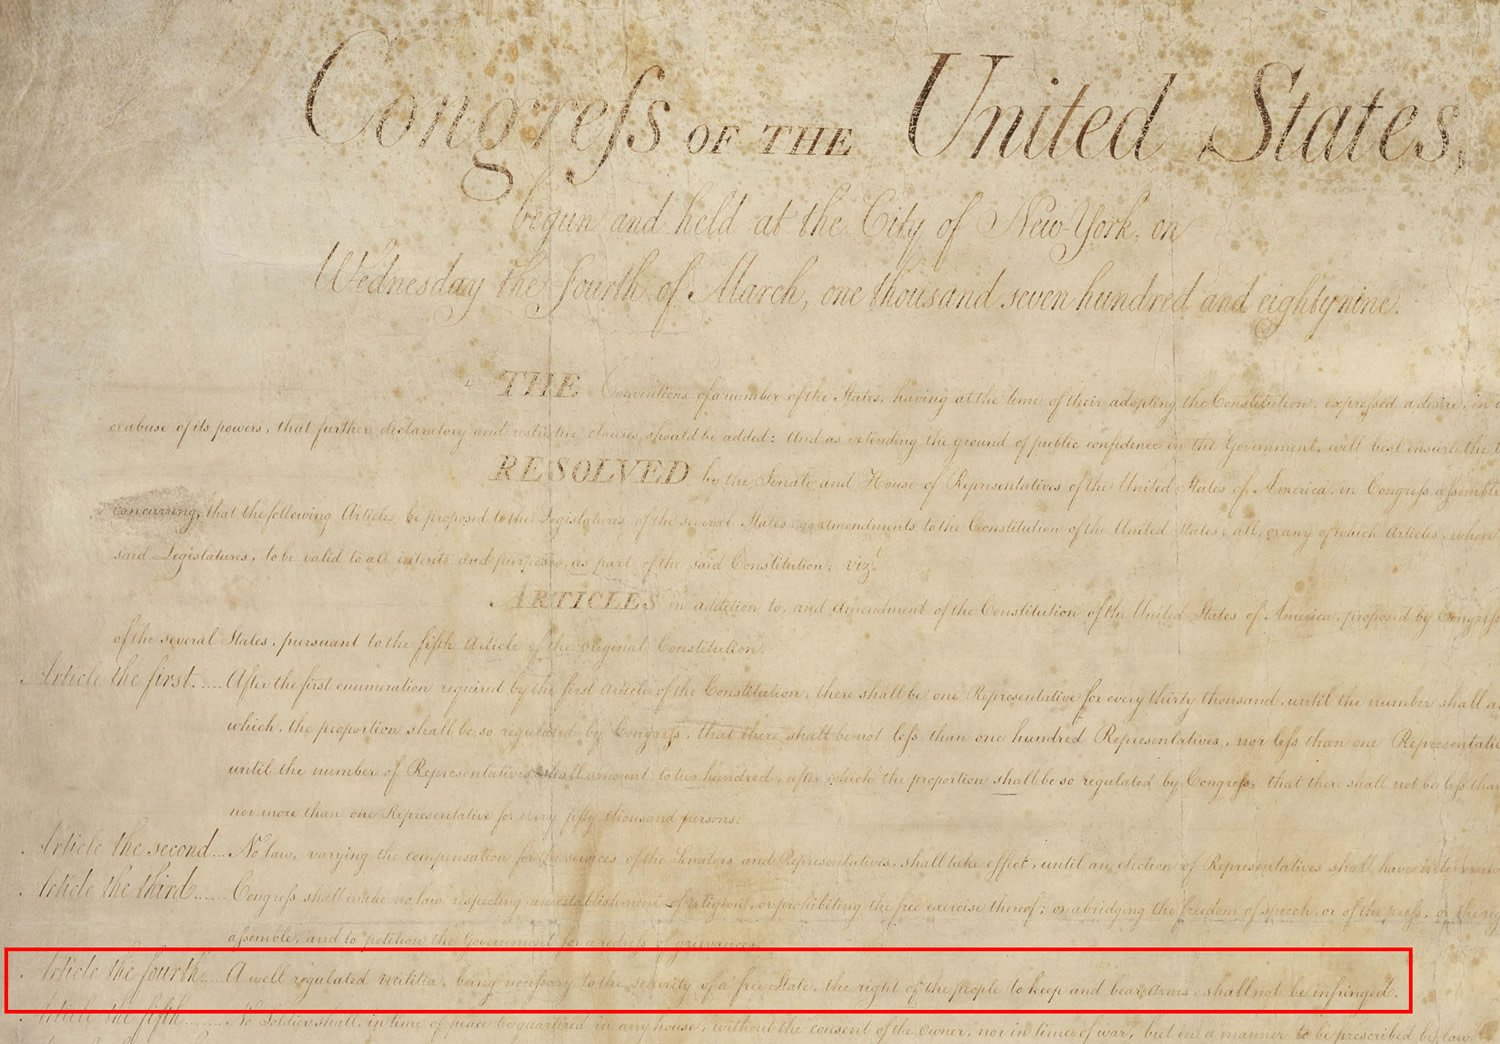 Congress OF THE United States,
begun and held at the City of New-York, on
Wednesday the fourth of March, one thousand seven hundred and eighty nine.
THE Conventions of a number of the States, having at the time of their adopting the Constitution, expressed a desire, in
or abuse of its powers, that further declaratory and restrictive clauses should be added: And as extending the ground of public confidence in the Government, will best ensure the
RESOLVED by the Senate and House of Representatives of the United States of America, in Congress assembled
concurring, that the following Articles be proposed to the Legislatures of the several States, as amendments to the Constitution of the United States, all, or any of which Articles, when
said Legislatures, to be valid to all intents and purposes, as part of the said Constitution; vizt
ARTICLES in addition to, and Amendment of the Constitution of the United States of America, proposed by Congress
of the several States, pursuant to the fifth Article of the original Constitution.
Article the first.... After the first enumeration required by the first Article of the Constitution, there shall be one Representative for every thirty thousand, until the number shall
which, the proportion shall be so regulated by Congress, that there shall be not less than one hundred Representatives, nor less than one
until the number of Representatives shall amount to two hundred, after which the proportion shall be so regulated by Congress, that there shall not be less than
nor more than one Representative for every fifty thousand persons.
Article the second... No law, varying the compensation for the services of the Senators and Representatives, shall take effect, until an election of Representatives shall have intervened
Article the third...... Congress shall make no law respecting an establishment of religion, or prohibiting the free exercise thereof; or abridging the freedom of speech, or of the press, or the
assemble, and to petition the Government for a redress of grievances.
Article the fourth.... A well regulated Militia, being necessary to the security of a free State, the right of the people to keep and bear Arms, shall not be infringed.
Article the fifth....... No Soldier shall, in time of peace be quartered in any house, without the consent of the Owner, nor in time of war, but in a manner to be prescribed by law.